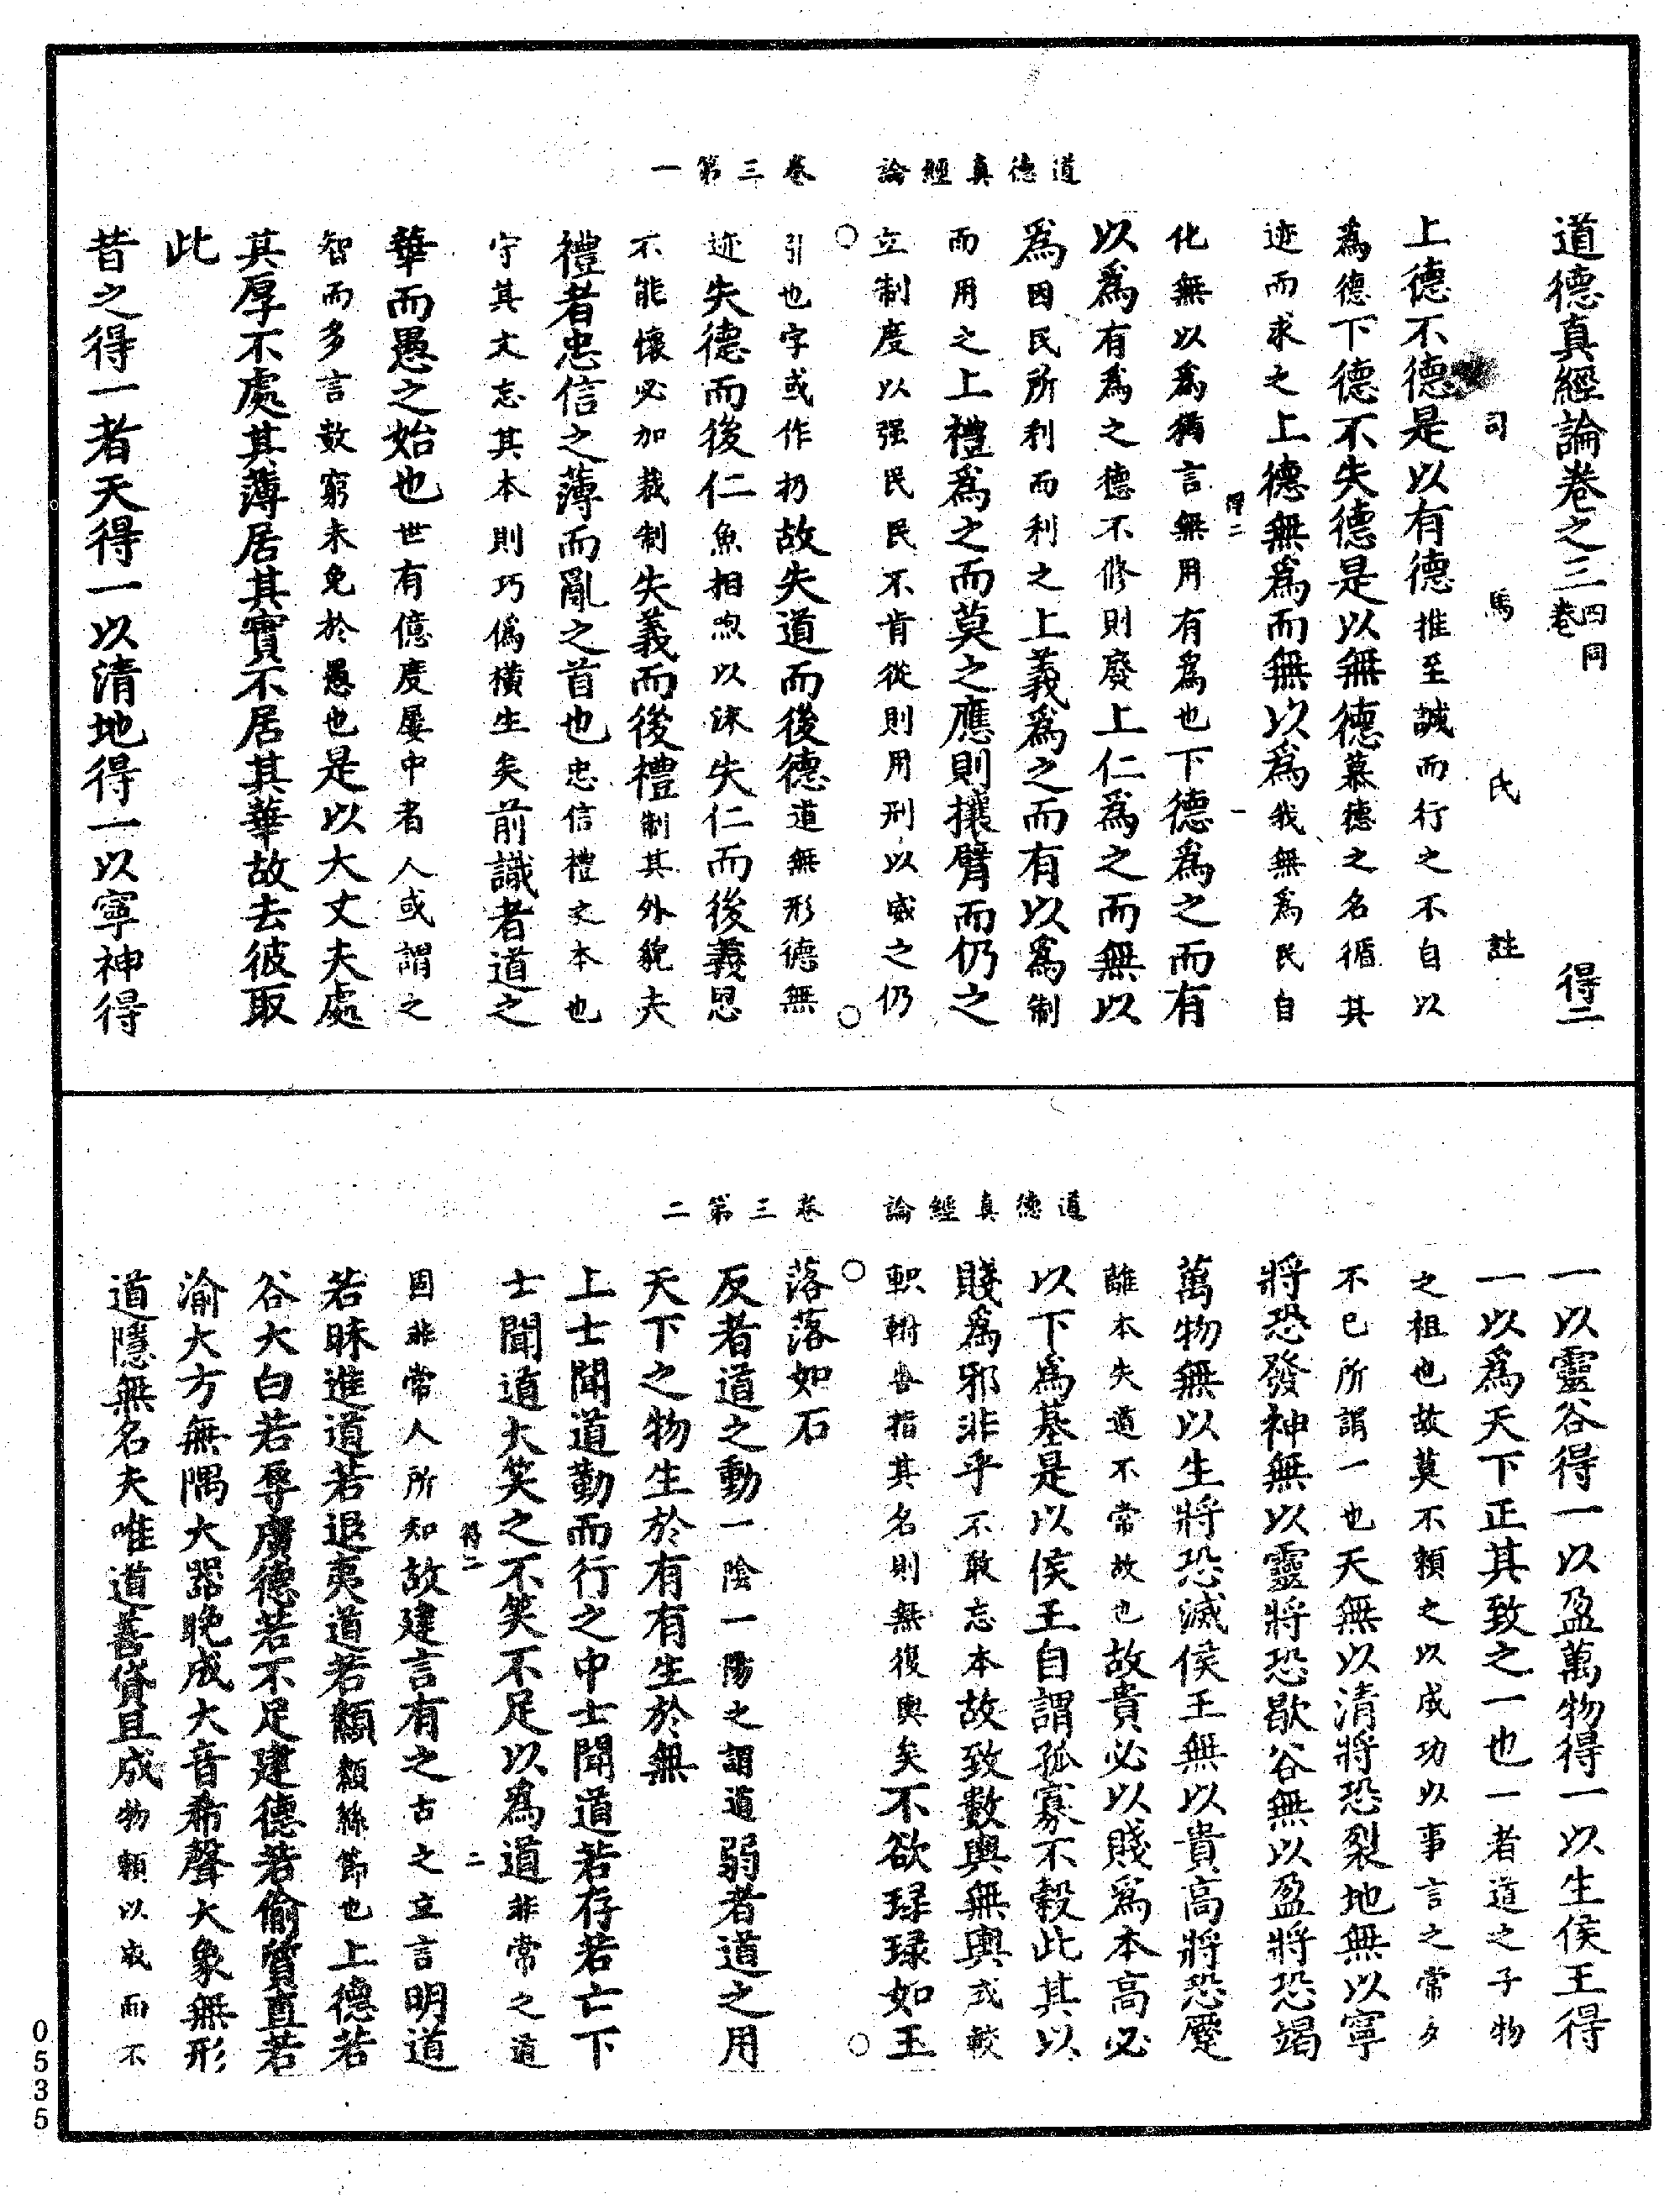 道德真經論卷之三 四同卷 得二
司馬氏註
上德不德是以有德推至誠而行之不自以
為德下德不失德是以無德慕德之名循其
迹而求之上德無為而無以為我無為民自
化無以為猶言無用有為也下德為之而有
以為有為之德不修則廢上仁為之而無以
為因民所利而利之上義為之而有以為制
而用之上禮為之而莫之應則攘臂而仍之
立制度以强民民不肯從則用刑以威之仍
引也字或作扔故失道而後德道無形德無
迹失德而後仁魚相喣以沫失仁而後義恩
不能懷必加裁制失義而後禮制其外貌夫
禮者忠信之薄而亂之首也忠信禮之本也
守其文忘其本則巧偽橫生矣前識者道之
華而愚之始也世有億度屢中者人或謂之
智而多言數窮未免於愚也是以大丈夫處
其厚不處其薄居其實不居其華故去彼取
此
昔之得一者天得一以清地得一以寧神得
道德真經論 卷三第一
得二 一
一以靈谷得一以盈萬物得一以生侯王得
一以為天下正其致之一也一者道之子物
之祖也故莫不賴之以成功以事言之常久
不已所謂一也天無以清將恐裂地無以寧
將恐發神無以靈將恐歇谷無以盈將恐竭
萬物無以生將恐滅侯王無以貴高將恐蹷
離本失道不常故也故貴必以賤為本高必
以下為基是以侯王自謂孤寡不穀此其以
賤為邪非乎不敢忘本故致數輿無輿或較
軹輈轡指其名則無復輿矣不欲琭琭如玉
落落如石
反者道之動一陰一陽之謂道弱者道之用
天下之物生於有有生於無
上士聞道勤而行之中士聞道若存若亡下
士聞道大笑之不笑不足以為道非常之道
固非常人所知故建言有之古之立言明道
若昧進道若退夷道若纇纇絲節也上德若
谷大白若辱廣德若不足建德若偷質直若
渝大方無隅大器晚成大音希聲大象無形
道隱無名夫唯道善貸且成物賴以成而不
道德真經論 卷三第二
得二 二
0535